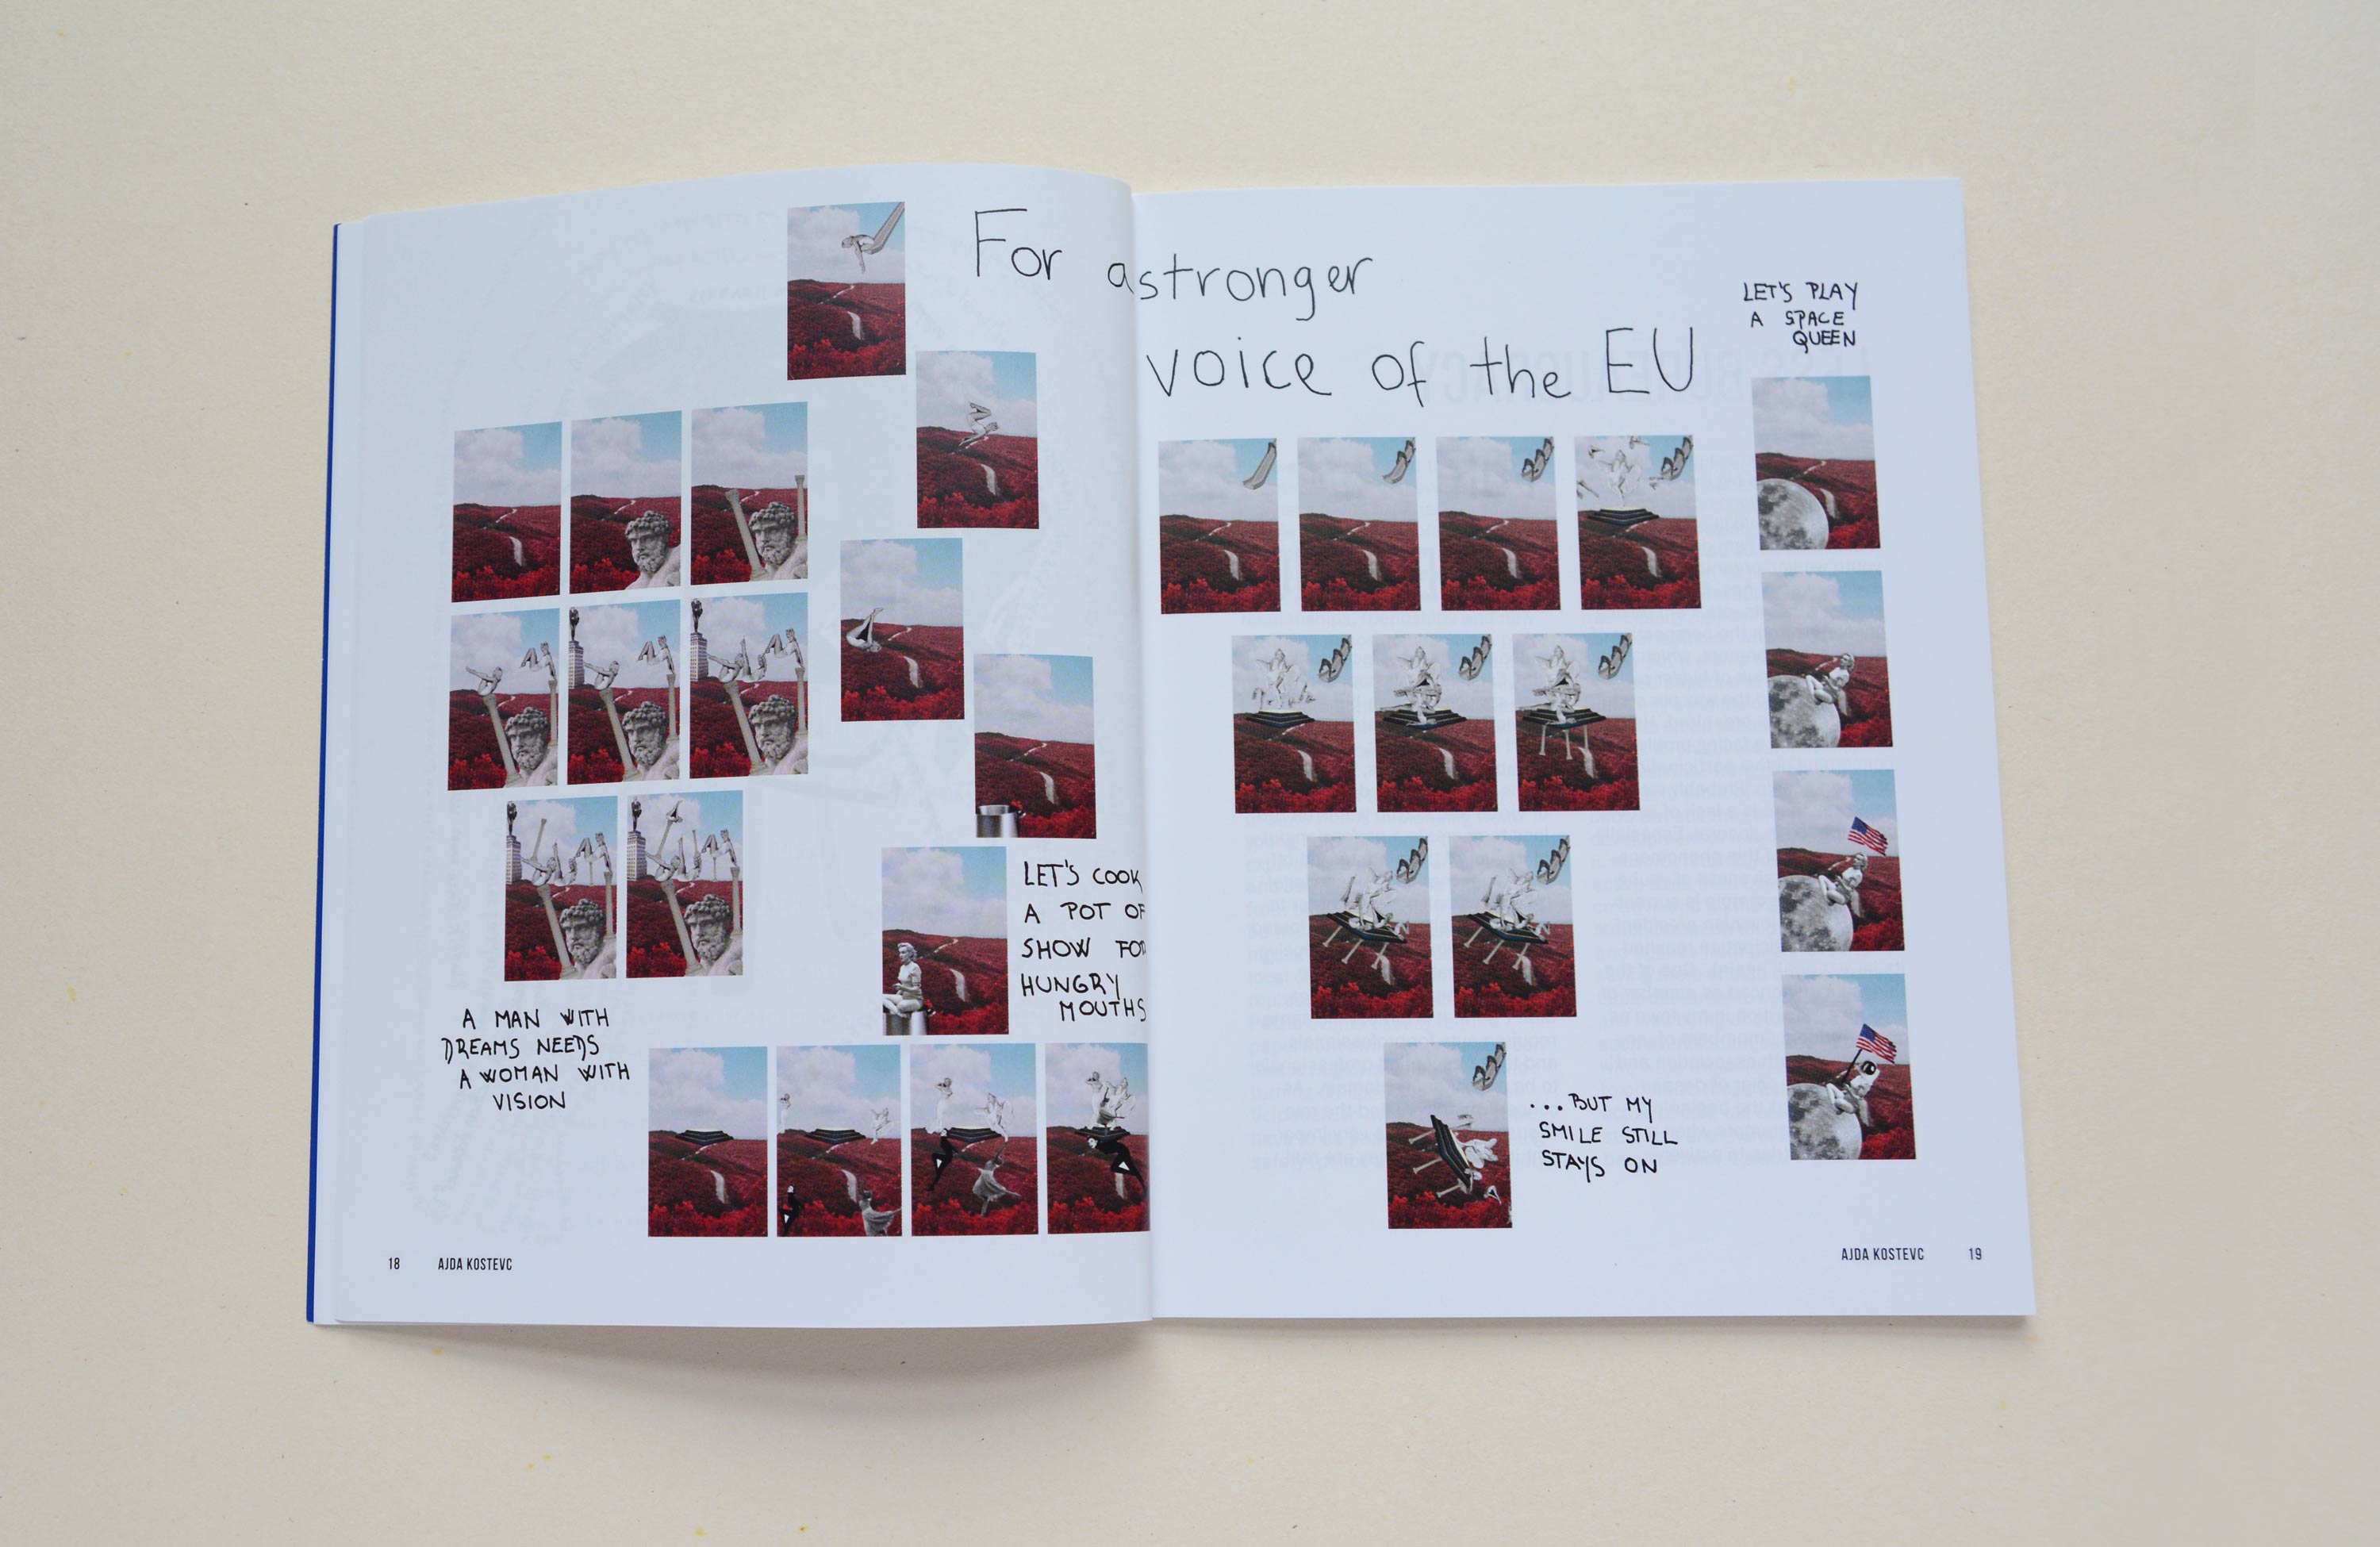 For a stronger
voice of the EU
LET'S PLAY
A SPACE
QUEEN
LET'S COOK
A POT OF
SHOW FOR
HUNGRY
MOUTHS
A MAN WITH
DREAMS NEEDS
A WOMAN WITH
VISION
...BUT MY
SMILE STILL
STAYS ON
18 AJDA KOSTEVC
AJDA KOSTEVC 19